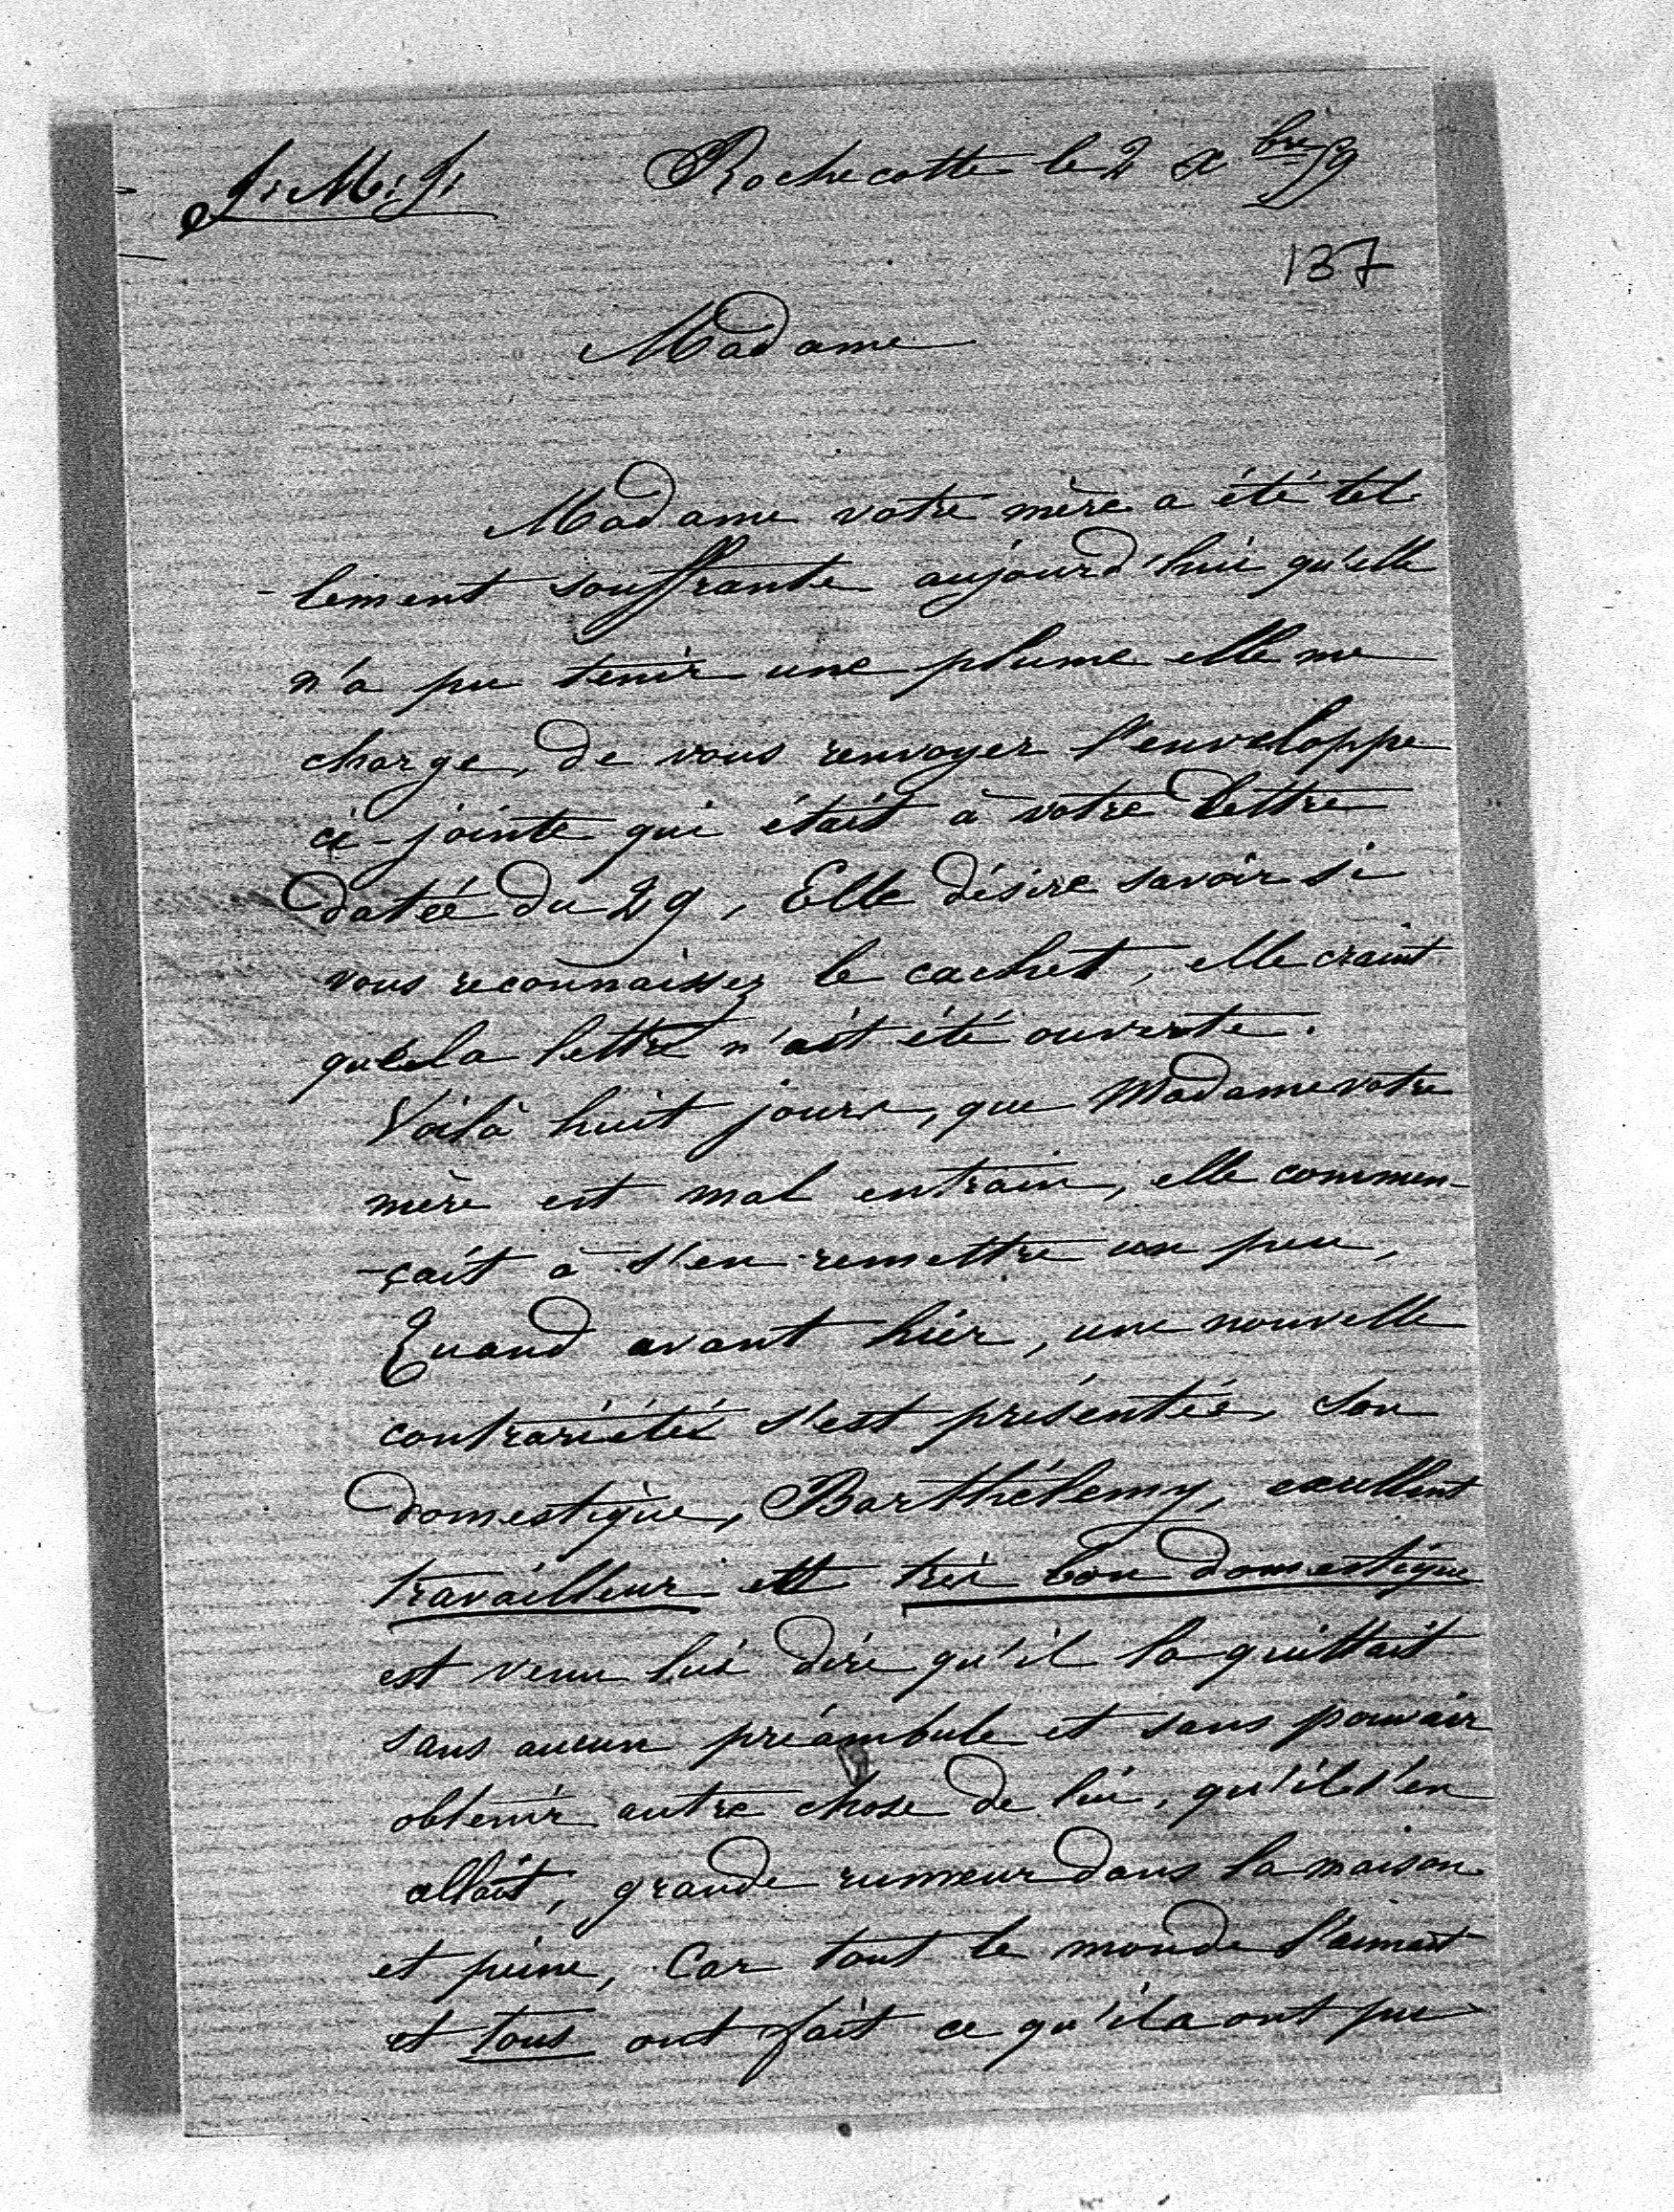 J. M. J. Rochecotte le 2 Xbre 79
137
Madame
Madame votre mère a été tel
-lement souffrante aujourd'hui qu'elle
n'a pu tenir une plume elle me
charge, de vous renvoyer l'enveloppe
ci-jointe qui était à votre lettre
datée du 29, Elle désire savoir si
vous reconnaissez le cachet, elle craint
que la lettre n'ait été ouverte.
Voilà huit jours, que Madame votre
mère est mal entrain, elle commen-
-çait à s'en remettre un peu,
Quand avant hier, une nouvelle
contrariétés s'est présentée, Son
domestique, Barthélemy, excellent
travailleur et très bon domestique
est venu lui dire qu'il la quittait
sans aucun préambule et sans pouvoir
obtenir autre chose de lui, qu'il s'en
allait, grande rumeur dans la maison
et peine, Car tout le monde l'aimait
et tous ont fait ce qu'ils ont pu